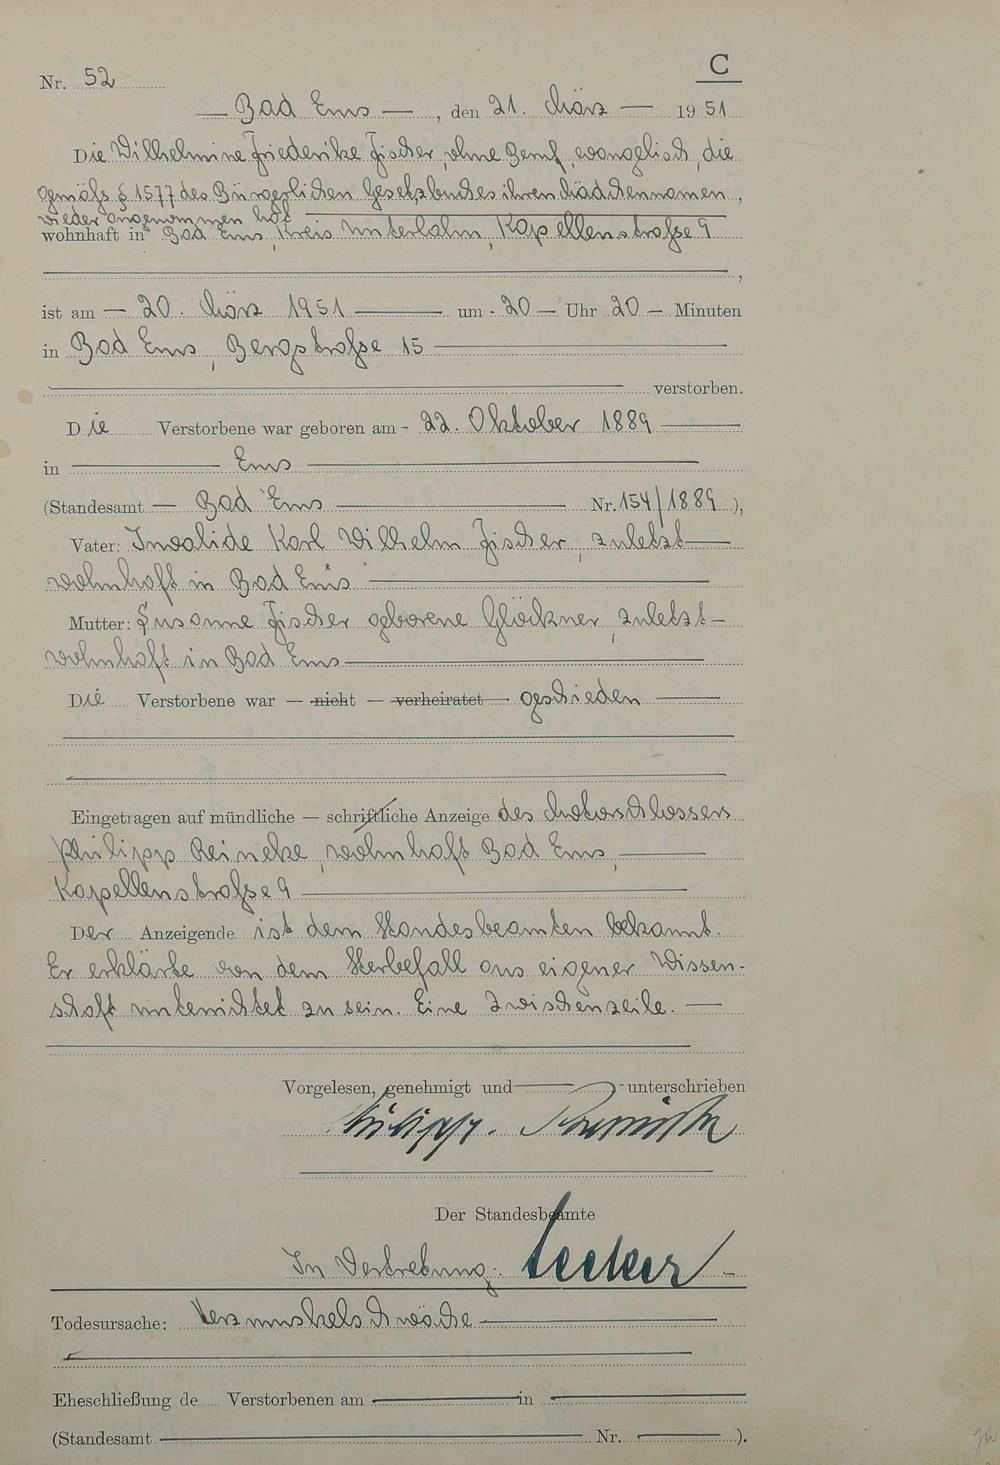 C
Nr. 52
— Bad Ems —, den 21. März — 1951
Die Wilhelmine Friederike Fischer, ohne Beruf, evangelisch, die
gemäß § 1577 des Bürgerlichen Gesetzbuches ihren Mädchennamen,
wieder angenommen hat
wohnhaft in Bad Ems, Kreis Unterlahn, Kapellenstraße 9
,
ist am — 20. März 1951 — um - 20 — Uhr 20 — Minuten
in Bad Ems, Bergstraße 15 —
verstorben.
Die Verstorbene war geboren am - 22. Oktober 1889 —
in — Ems —
(Standesamt — Bad Ems — Nr. 154/1889),
Vater: Invalide Karl Wilhelm Fischer, zuletzt —
wohnhaft in Bad Ems —
Mutter: Susanne Fischer geborene Glöckner, zuletzt —
wohnhaft in Bad Ems —
Die Verstorbene war — nicht — verheiratet — geschieden —
Eingetragen auf mündliche — schriftliche Anzeige des Motorschlossers
Philipp Reineke, wohnhaft Bad Ems, —
Kapellenstraße 9 —
Der Anzeigende ist dem Standesbeamten bekannt.
Er erklärte von dem Sterbefall aus eigener Wissen-
schaft unterrichtet zu sein. Eine Zwischenzeile. —
Vorgelesen, genehmigt und — unterschrieben
Philipp
Der Standesbeamte
In Vertretung:
Todesursache: Herzmuskelschwäche —
Eheschließung de Verstorbenen am — in —
(Standesamt — Nr. — ).